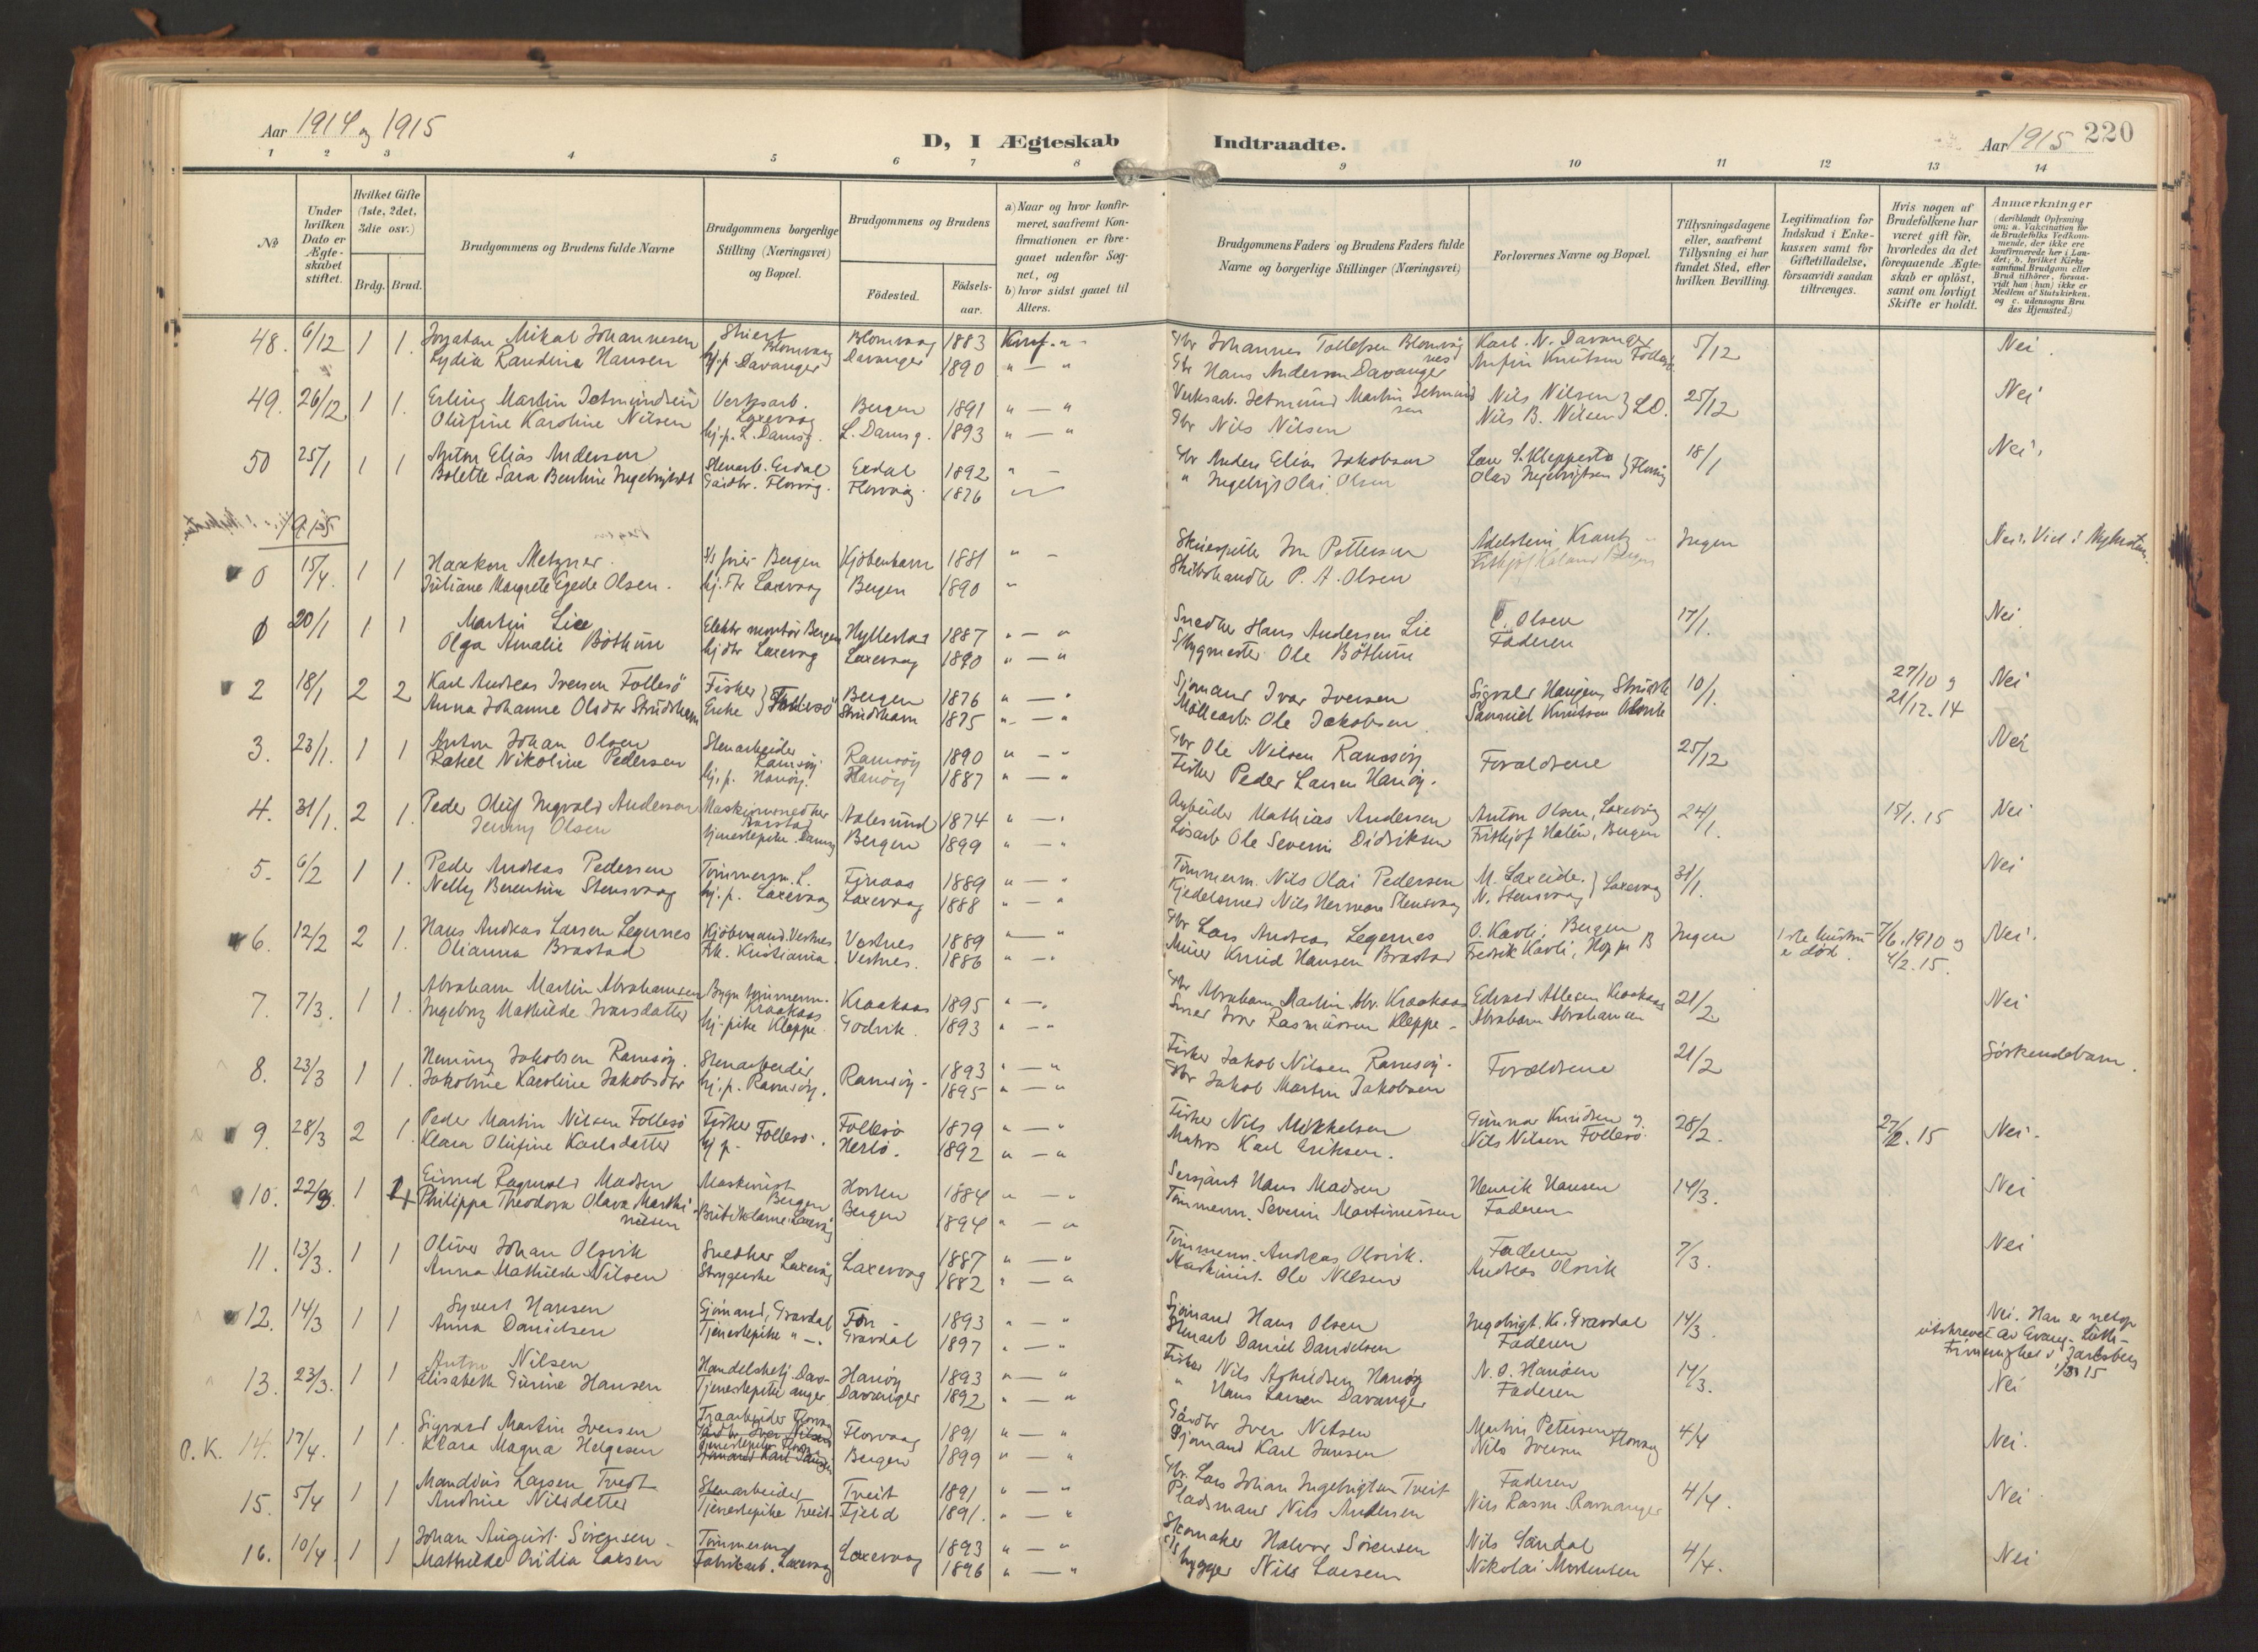 Aar 1914 og 1915
D, I Ægteskab
Indtraadte.
Aar 1915 220
1 2 3 4 5 6 7 8 9 10 11 12 13 14
No
Under hvilken Dato er Ægteskabet stiftet.
Hvilket Gifte (1ste, 2det, 3die osv.)
Brdg. Brud.
Brudgommens og Brudens fulde Navne
Brudgommens borgerlige Stilling (Næringsvei) og Bopæl.
Brudgommens og Brudens
Födested.
Födselsaar.
a) Naar og hvor konfirmeret, saafremt Konfirmationen er foregaaet udenfor Sognet, og
b) hvor sidst gaaet til Alters.
Brudgommens Faders og Brudens Faders fulde Navne og borgerlige Stillinger (Næringsvei)
Forlovernes Navne og Bopæl.
Tillysningsdagene eller, saafremt Tillysning ei har fundet Sted, efter hvilken Bevilling.
Legitimation for Indskud i Enkekassen samt for Giftetilladelse, forsaavidt saadan tiltrænges.
Hvis nogen af Brudefolkene har været gift för, hvorledes da det foregaaende Ægteskab er oplöst, samt om lovligt Skifte er holdt.
Anmærkninger
(deriblandt Oplysning om: a. Vakcination for de Brudefolks Vedkommende, der ikke ere konfirmerede her i Landet; b. hvilket Kirkesamfund Brudgom eller Brud tilhører, forsaavidt han (hun) ikke er Medlem af Statskirken, og c. udensogns Brudes Hjemsted.)
48. 6/12 1 1. Jonatan Mikal Johannesen Blomvaag Blomvaag 1883 Konf. Gbr Johannes Tollefsen Blomvåg Karl. N. Davanger 5/12 Nei.
Lydia Randina Hansen hj. p. Davanger Davanger 1890 Gbr Hans Andersen Davanger Knutsen
49. 26/12 1 1. Erling Martin Jetmundsen Verksarb. Laxevaag Bergen 1891 Verksarb. Jetmund Martin Jetmundsen Nils Nilsen 25/12 Nei
Olufine Karoline Nilsen hj. p. L. Damsg. L. Damsg. 1893 Gbr Nils Nilsen Nils B. Nilsen } L.D.
50 25/1 1 1 Anton Elias Andersen Stenarb. Erdal Erdal 1892 Gbr Anders Elias Jakobsen Lars S. Kleppestø 18/1 Nei.
Bolette Sara Bentine Florvåg Florvåg 1876 " Ingebrigt Olai Olsen Olav Ingebrigtsen
1915
0 15/4. 1 1 Haakon Metzner. Bergen Kjöbenhavn 1881 Skuespiller Pettersen Adelsten Krantz Ingen Nei. Viet i Nykirken
Juliane Margrete Egede Olsen. Laxevaag Bergen 1890 Skibshandler P. A. Olsen Bergen
20/1 1 1 Martin Lie Elektr montör Bergen Hyllestad 1887 Snedker Hans Andersen Lie Olsen 17/1. Nei.
Olga Amalie Böthun hj dtr Laxevaag Laxevaag 1890 Ole Böthun Faderen
2 18/1 2 2 Karl Andreas Iversen Follesö Fisker Bergen 1876 Sjömand Ivar Iversen Sigvald Haugen, 10/1. 27/10 og Nei
Anna Johanne Olsdtr Strudshavn Enke } Follesö Strudshavn 1875 Möllearb. Ole Jakobsen Samuel Knutsen 21/12. 14
3. 23/1. 1 1 Anton Johan Olsen Stenarbeider Ramsöy Ramsöy 1890 Gbr Ole Nilsen Ramsöy Forældrene 25/12 Nei
Rakel Nikoline Pedersen hj. p. Hanöy. Hanöy 1887 Fisker Peder Larsen Hanöy.
4. 31/1. 2 1. Peder Oluf Ingvald Andersen Maskinsnedker Aalesund 1874 Arbeider Mathias Andersen Anton Olsen, Laxevåg 24/1. 15/1. 15 Nei
Jenny Olsen tjenestepike Bergen 1899 Lösarb Ole Severin Didriksen Frithjof Halen, Bergen
5. 6/2 1 1. Peder Andreas Pedersen Tömmerm. L. Finaas 1889 Tömmerm. Nils Olai Pedersen M. Laxeide. 31/1. Nei
Nelly Berentine Stensvaag hj. p. Laxevaag Laxevaag 1888 Kjedelsmed Nils Herman Stensvaag N. Stensvaag } Laxevaag
6. 12/2 2 1. Hans Andreas Larsen Legernes Kjöbmand. Vestnes Vestnes 1889 Gbr Lars Andreas Legernes O. Kavli, Bergen Ingen 1ste hustru 7/6. 1910 og Nei.
Olianna Brastad Frk. Kristiania. Vestnes. 1886 Murer Knud Hansen Brastad Fredrik Kavli, er död. 4/2. 15.
7. 7/3. 1 1. Abraham Martin Abrahamsen tömmerm. Kraakaas Kraakaas 1895 Gbr Abraham Martin Abr. Kraakaas Edvard Kraakaas 21/2. Nei
Ingeborg Mathilde Ivarsdatter hj-pike Kleppe Godvik. 1893 Ivar Rasmussen Kleppe Abraham Abrahamsen
8. 23/3 1 1. Henning Jakobsen Ramsöy. Stenarbeider 1893 Fisker Jakob Nilsen Ramsöy. Forældrene 21/2 Söskendebarn.
Jakobine Karoline Jakobsdtr hj. p. Ramsöy. Ramsöy. 1895 Gbr Jakob Martin Jakobsen
9. 28/3 2 1. Peder Martin Nilsen Follesö Fisker Follesö 1879 Fisker Nils Mikkelsen Gunnar Knudsen og 28/2. 27/2. 15 Nei.
Klara Olufine Karlsdatter hj p. Follesö. Herlö. 1892 Matros Karl Eriksen. Nils Nilsen Follesö
10. 1 Eivind Ragnvald Madsen Maskinist Bergen Horten 1884 Sersjant Hans Madsen Henrik Hansen 14/3. Nei
Philippa Theodora Olava Marthinussen Bergen 1894 Tömmerm. Severin Martinussen Faderen
11. 13/3. 1 1 Oliver Johan Olsvik Snedker Laxevåg Laxevaag 1887 Tömmerm. Andreas Olsvik. Faderen 7/3. Nei
Anna Mathilde Nilsen Strygerske 1882 Maskinist. Ole Nilsen Andreas Olsvik
12. 14/3 1 1 Syvert Hansen Sjömand, Gravdal 1893 Sjömand Hans Olsen Ingebrigt. Gravdal 14/3. Nei. Han er netop
Anna Danielsen Tjenestepike " Gravdal 1897 Stenarb Daniel Danielsen Faderen utskrevet av Evang. Luth.
Frimenighet i Jarlsberg
13. 23/3. 1 1 Anton Nilsen Handelsbetj. Davanger Hanöy 1893 Fisker Nils Hanöy N. O. Hanöen 14/3. Nei
Elisabeth Gurine Hansen Tjenestepike Davanger 1892 " Hans Larsen Davanger Faderen
P. K. 14. 17/4. 1 1. Sigvard Martin Iversen Florvaag 1891 Gårdbr Iver Nilsen Martin Petersen 4/4 Nei.
Klara Magna Helgesen Bergen 1899 Sjömand Karl Jansen Nils Iversen Florvåg
15. 5/4 1 1 Mandius Larsen Tveit Stenarbeider Tveit 1891 Gbr. Lars Johan Ingebrigtsen Tveit Faderen 4/4. Nei
Andrine Nilsdatter Tjenestepike Tveit Fjeld 1891. Pladsmand Nils Andersen Nils Rasm. Ravnanger
16. 10/4. 1 1 Johan August Sörensen Tömmermand Laxevaag 1893 Skomaker Halvor Sörensen Nils Sandal 4/4. Nei
Mathilde Ovidia Larsen Fabrikarb. Laxevaag 1896 Nils Larsen Nikolai Mortensen